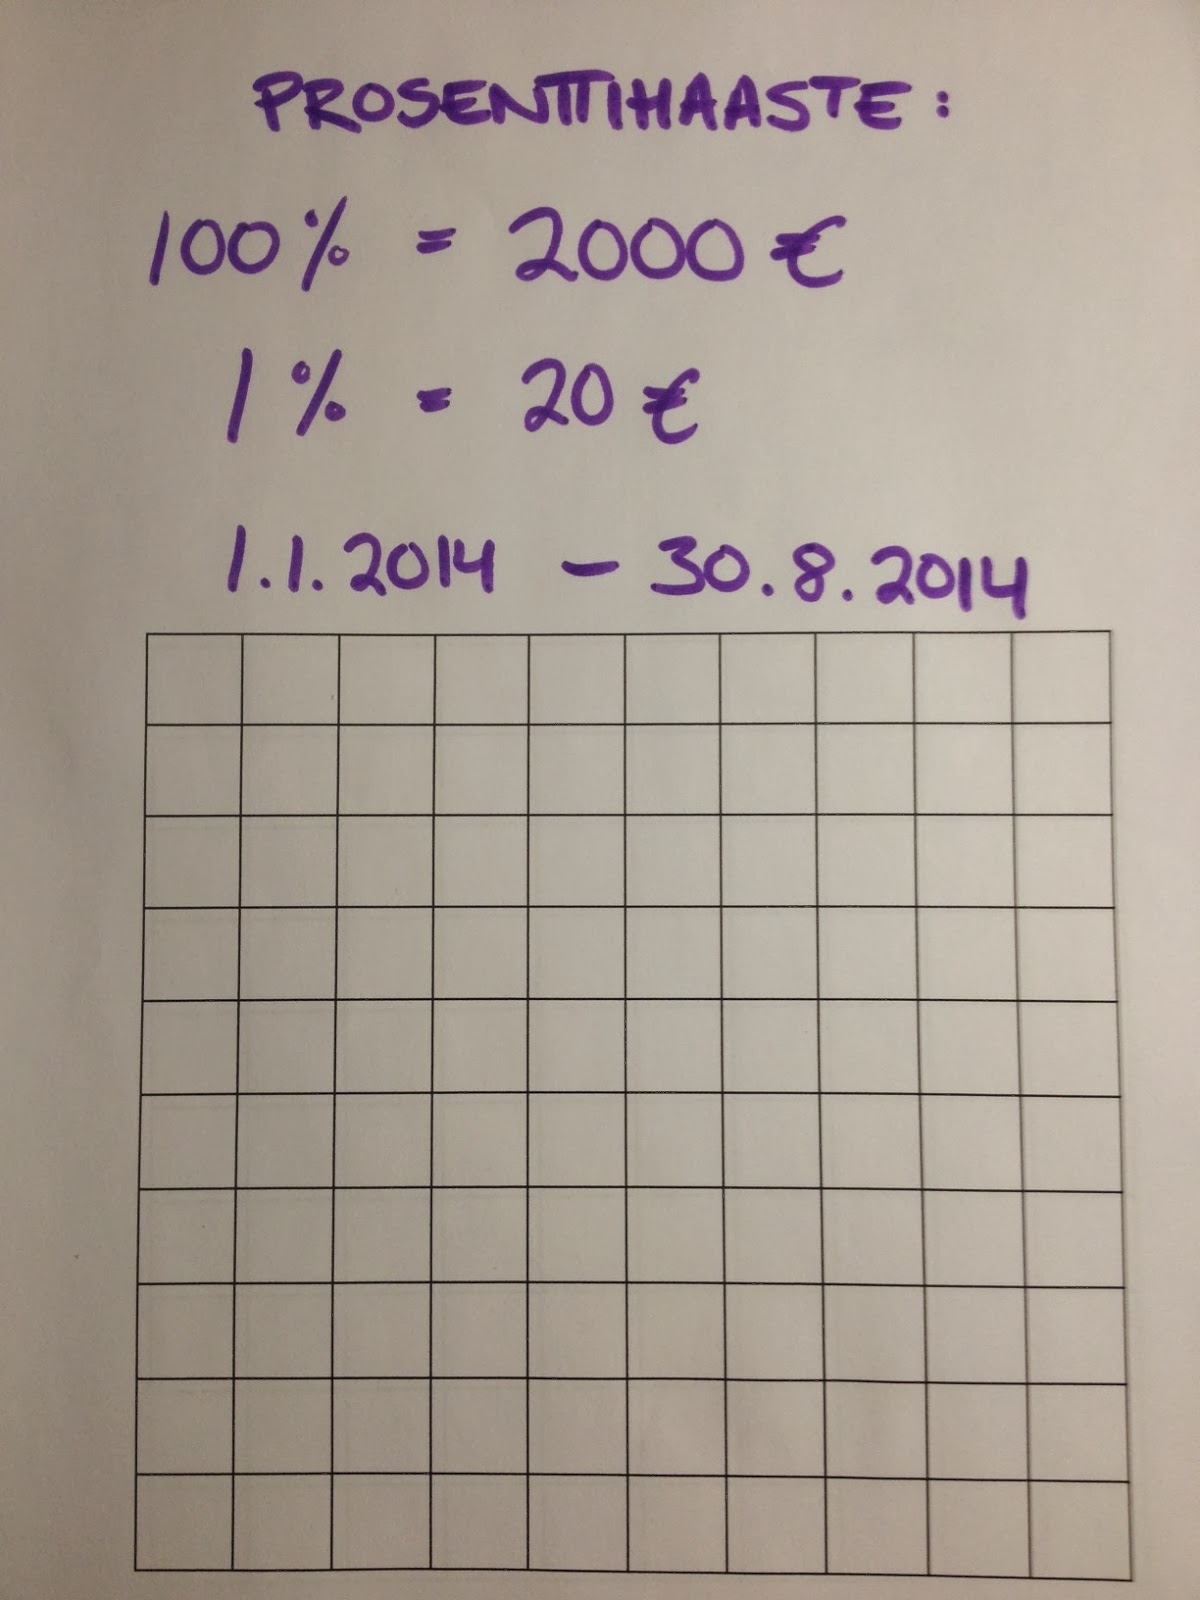 PROSENTTIHAASTE:
100% = 2000 €
1% = 20 €
1.1.2014 – 30.8.2014